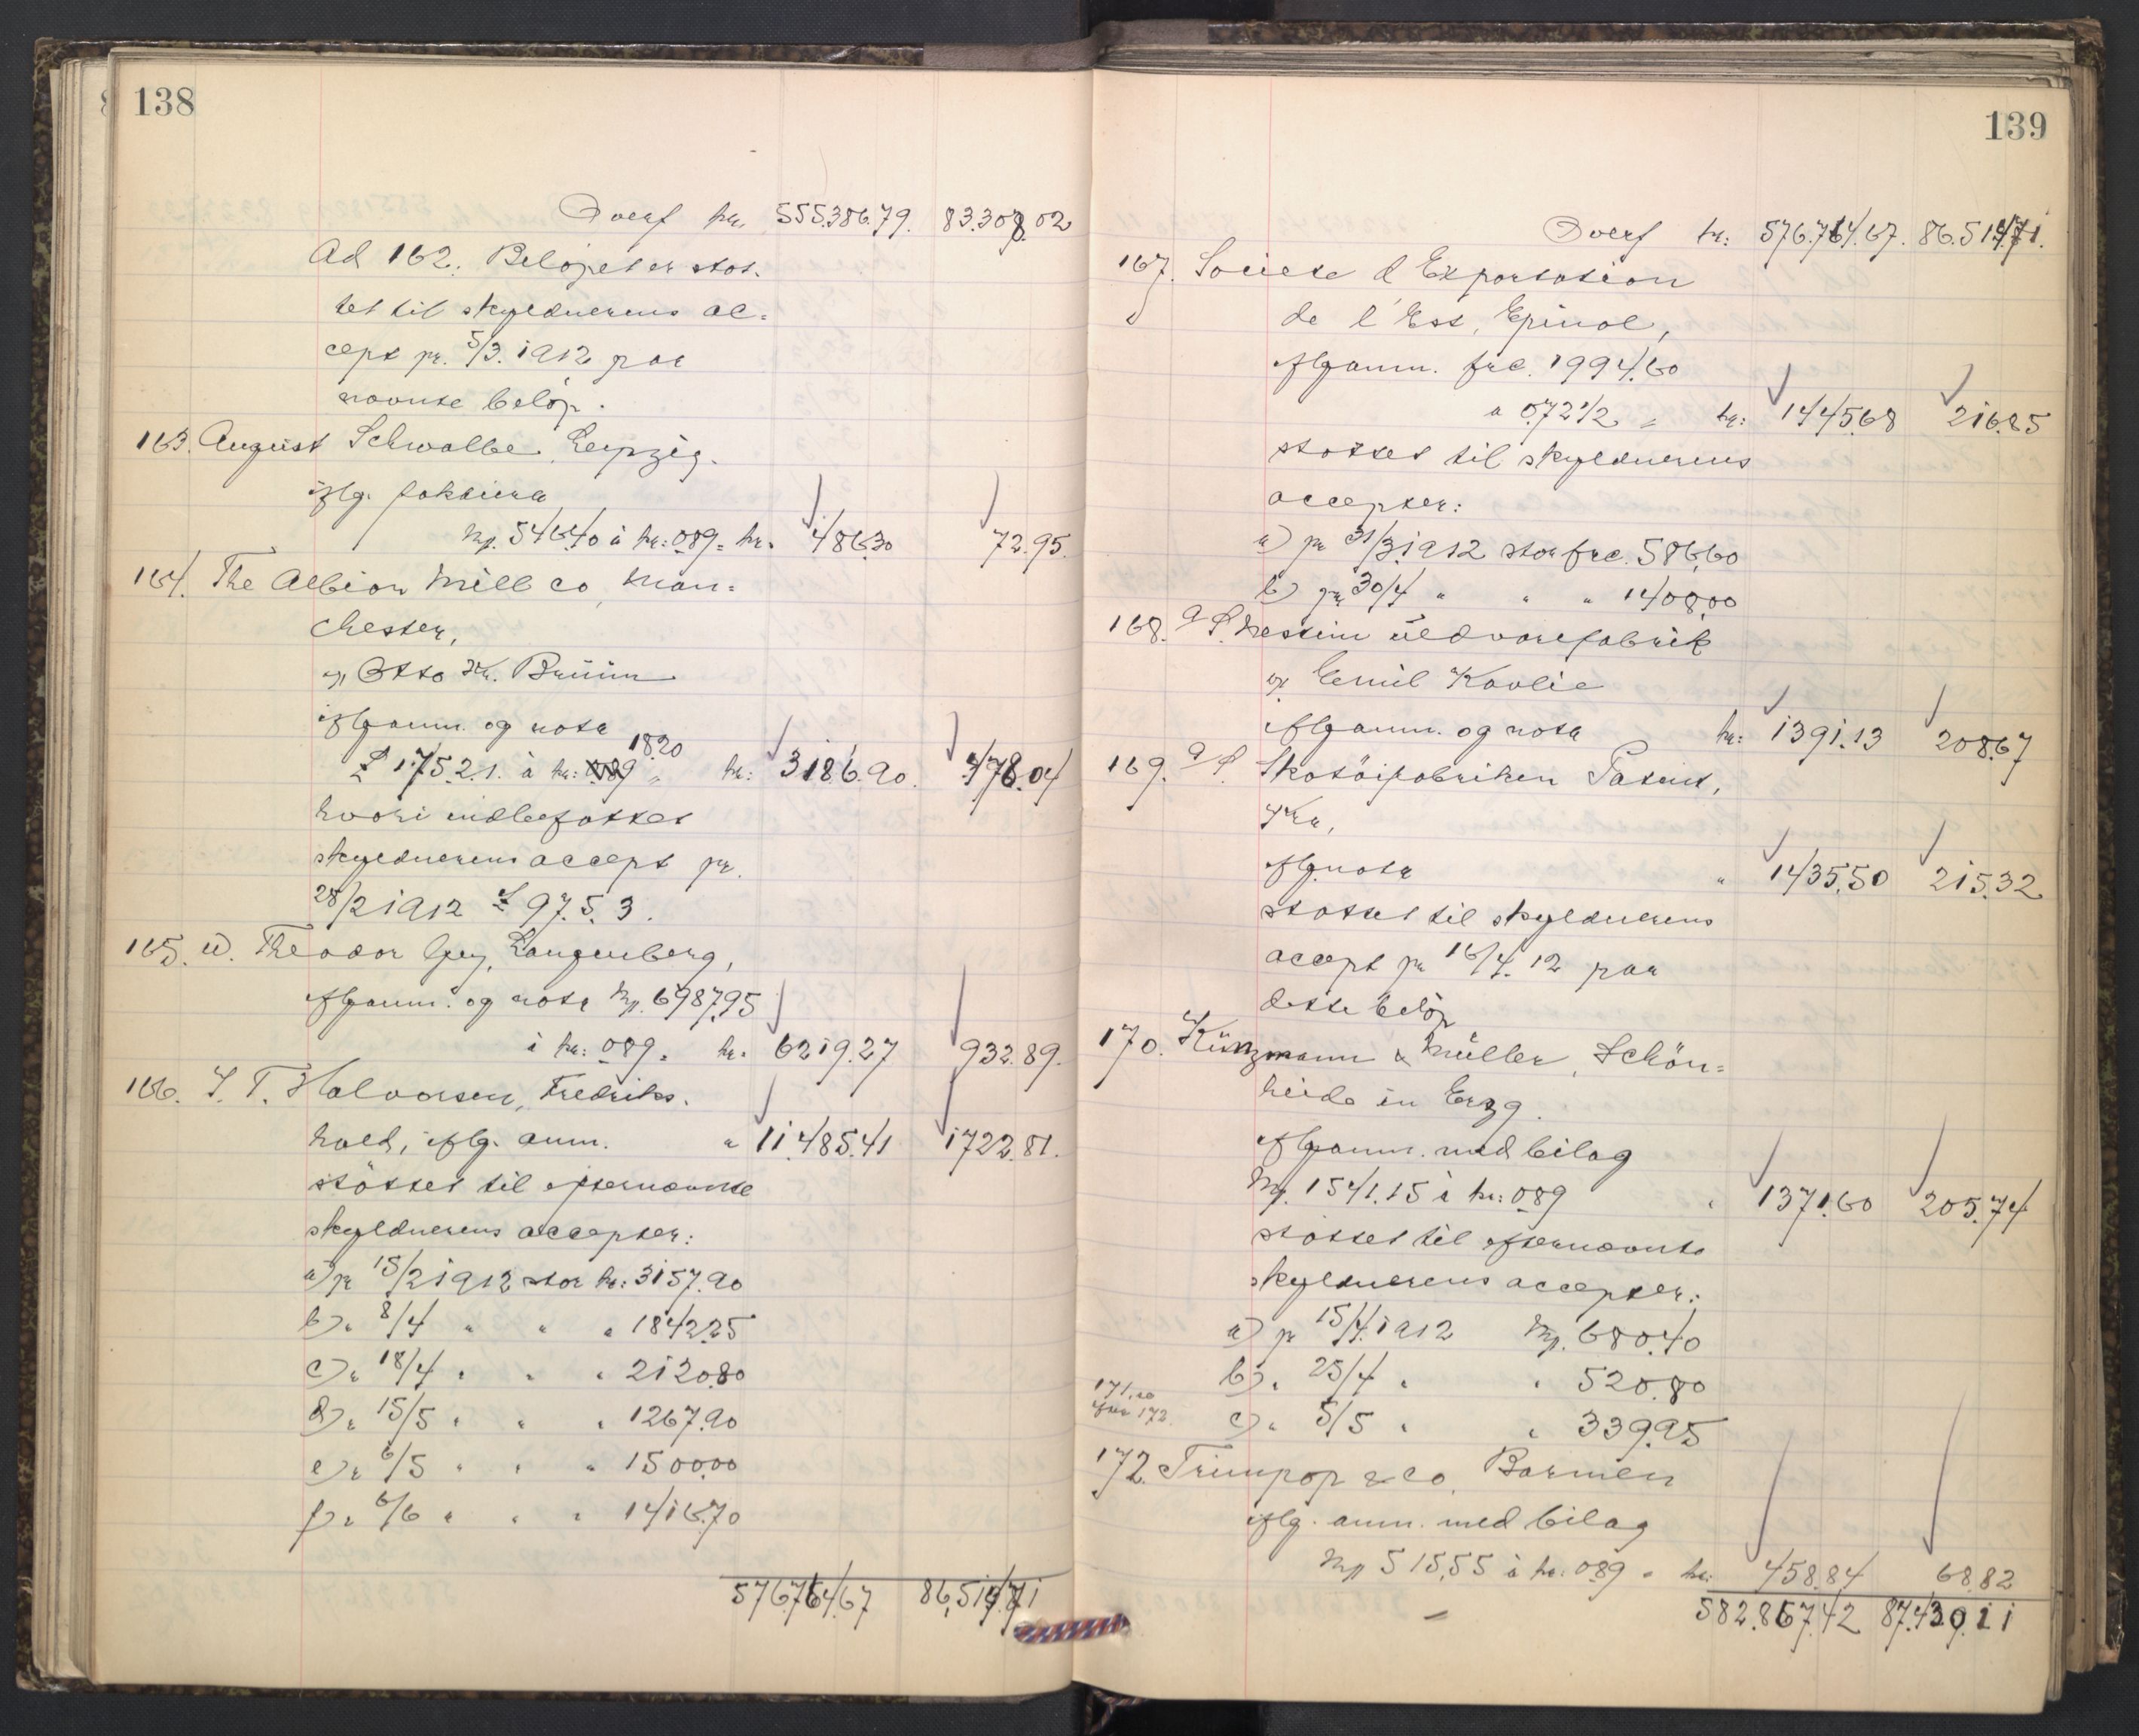 138
Overf kr. 555.386.79. 83.307.02
Ad 162. Beløpet er støt-
tet til skyldnerens ac-
cept pr. 5/3. 1912 paa
nævnte beløp.
163. August Schwalbe, Leipzig.
iflg. faktura
Mp. 546.40 à kr: 0.89 = kr. 486.30 72.95.
164. The Albion Mill Co, Man-
chester,
v/ Otto Kr. Bruun
iflg anm. og nota
18.20
£ 175.2.1. à kr: 089 " kr: 3186.90. 478.04
hvori indbefattet
skyldnerens accept pr.
28/2 1912 £ 97.5.3.
165. W. Theodor Gey, Langenberg,
iflg anm. og nota Mp. 6987.95
à kr: 089 = kr. 6219.27 932.89.
166. T. Halvorsen, Fredriks-
hald, iflg. anm. " 11.485.41 1722.81.
støttet til efternævnte
skyldnerens accepter:
a) pr 15/2 1912 stor kr: 3157.90
b) " 8/4 " " " 1842.25
c) " 18/4 " " " 2120.80
d) " 15/5 " " " 1267.90
e) " 6/5 " " " 1500.00
f) " 6/6 " " " 1416.70
576.764.67 86,514.71
139
Overf kr: 576.764.67. 86.514.71.
167. Societe d Exportation
de l'Est, Epinal,
iflg anm. frc. 1994.60
a 0.72 1/2 " kr: 1445.68 216.85
støttet til skyldnerens
accepter:
a) pr 31/3 1912 stor frc. 586.60
b) pr 30/4 " " " 1408.00
168. A/S. Nesttun uldvarefabrik
v/ Emil Kavlie
iflg anm. og nota kr: 1391.13 208.67
169. A/S. Skotøifabriken Patent,
Kra,
iflg nota " 1435.50 215.32
støttet til skyldnerens
accept pr 16/4. 12 paa
dette beløp
170. Künzmann & Müller, Schön-
heide in Erzg.
iflg anm. med bilag
Mp. 1541.15 à kr: 089 " 1371.60 205.74
støttet til efternævnte
skyldnerens accepter:
a) pr 15/4. 1912 Mp. 680.40
b) " 25/4 " " 520.80
171. se
efter 172.
c) " 5/5 " " 339.95
172. Trimpop & Co, Barmen
iflg. anm. med bilag
Mp 515,55 à kr: 089 = kr: 458.84 68.82
582.867.42 87.430.11